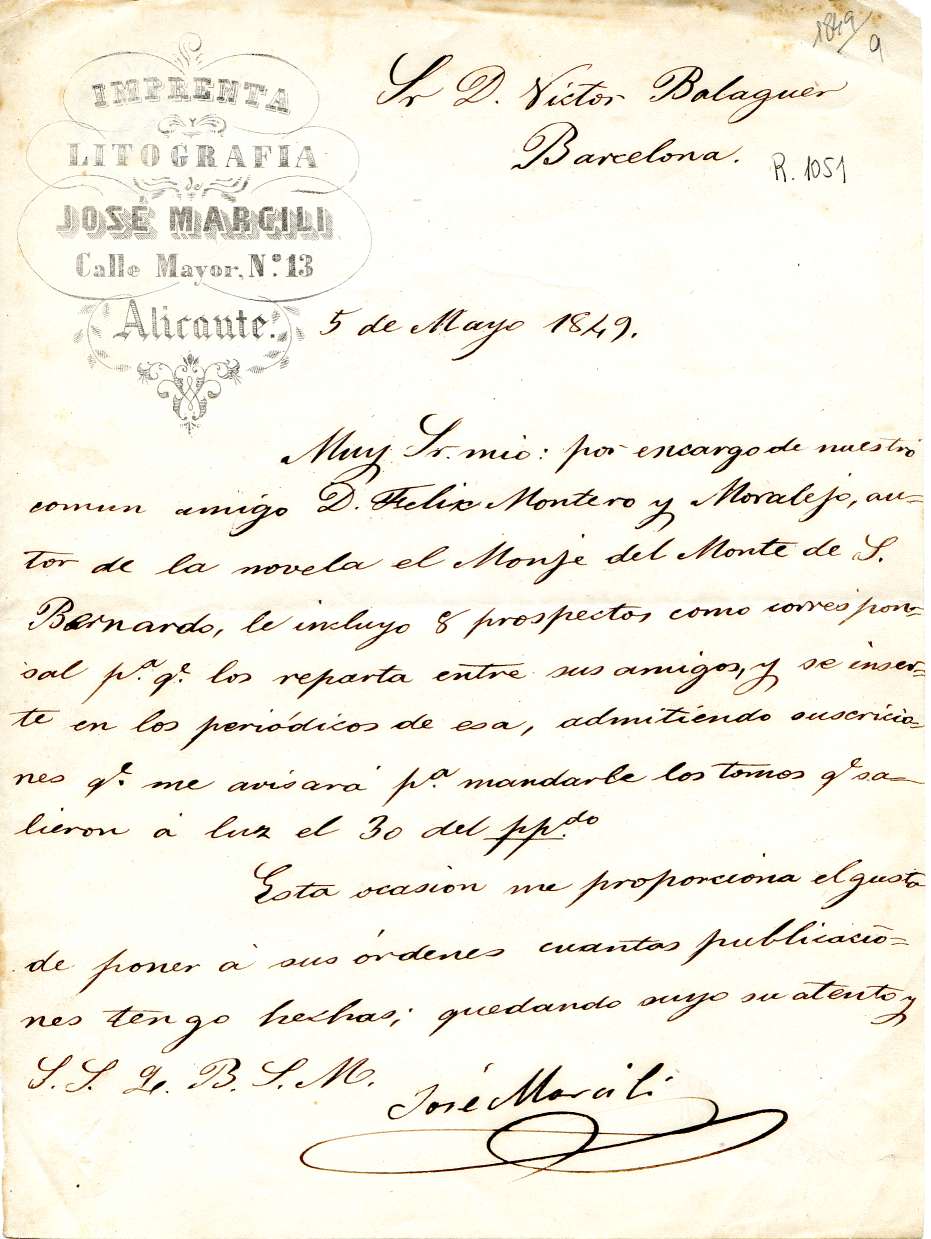 1849/9
IMPRENTA
Y
LITOGRAFIA
de
JOSÉ MARCILI
Calle Mayor, N.º 13
Alicante.
Sr D. Victor Balaguer
Barcelona.
R. 1051
5 de Mayo 1849.
Muy Sr. mio: por encargo de nuestro
comun amigo D. Felix Montero y Moralejo, au=
tor de la novela el Monje del Monte de S.
Bernardo, le incluyo 8 prospectos como correspon=
sal p.ª q.e los reparta entre sus amigos, y se inser=
te en los periódicos de esa, admitiendo suscricio=
nes q.e me avisará p.ª mandarle los tomos q.e sa=
lieron á luz el 30 del pp.do
Esta ocasion me proporciona el gusto
de poner á sus órdenes cuantas publicacio=
nes tengo hechas; quedando suyo su atento y
S. S. Q. B. S. M.
José Marcili